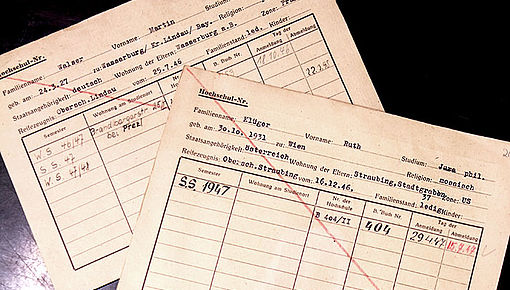 Hochschul-Nr.
Familienname: Walser Vorname: Martin Studium:
geb. am 24.3.27 zu: Wasserburg/ Kr.Lindau/ Bay. Religion:
Staatsangehörigkeit: deutsch Wohnung der Eltern: Wasserburg a.B. Zone:
Reifezeugnis: Obersch.Lindau vom: 25.7.46 Familienstand: led. Kinder:
Semester Wohnung am Studienort D. Buch Nr. Tag der Anmeldung Abmeldung
W.S. 46/47 Brandlbergerstr. 11.10.46 22.1.47
S.S. 47 bei
W.S. 47/48
Hochschul-Nr.
Familienname: Klüger Vorname: Ruth Studium: Jana phil.
geb. am: 30.10. 1931 zu: Wien Religion: mosaisch
Staatsangehörigkeit: Österreich Wohnung der Eltern: Straubing, Stadtgraben 37 Zone: US
Reifezeugnis: Obersch. Straubing vom: 16.12.46. Familienstand: ledig Kinder:
Semester Wohnung am Studienort Nr. der Hochschule D. Buch Nr. Tag der Anmeldung Abmeldung
S.S. 1947 B 404/II 404 29.4.47